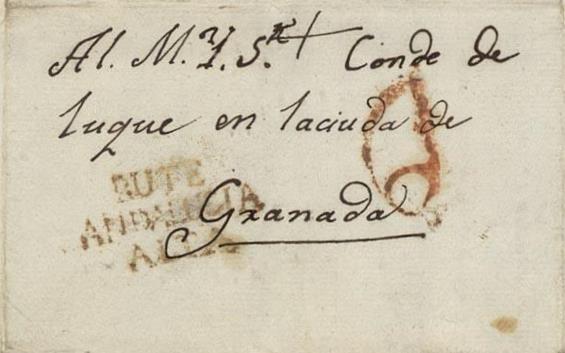 Al. M.ʳʸ I. S.ᵒʳ Conde de
luque en laciuda de
Granada
RUTE
ANDALUCIA
ALTA